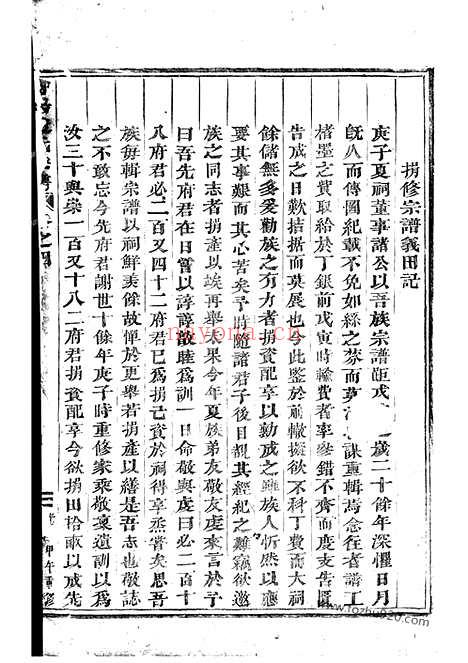 捐修宗譜義田記
庚子夏祠董事諸公以吾族宗譜距戊 歲二十餘年深懼日月
既久而傳圖紀載不免如絲之棼而莫 謀重輯焉念徃者譜工
楮墨之費取給於丁銀前戊寅時輸費者率參錯不齊而度支告匱
告成之日歎拮据而莫展也今此鑒於前轍擬欲不科丁費而大祠
餘儲無多爰勸族之有力者捐資配享以勷成之 族人忻然以應
要其事艱而其心苦矣予時隨諸君子後目覩其經紀之難竊欲邀
族之同志者捐產以俟再舉未果今年夏族弟友敬友虔來言於予
曰吾先府君在日嘗以諄諄敦睦為訓一日命敬與虔曰必二百十
八府君必二百又四十二府君已為捐己資於祠得享烝嘗矣思吾
族每輯宗譜以祠鮮羨餘故憚於更舉若捐產以繕是吾志也敬誌
之不敢忘今先府君謝世十餘年庚子時重修家乘敬稟遺訓以為
汝三十與崇一百又十八二府君捐資配享今欲捐田拾畝以成先
甲午重修
nayona.cn
www.fozhu920.com